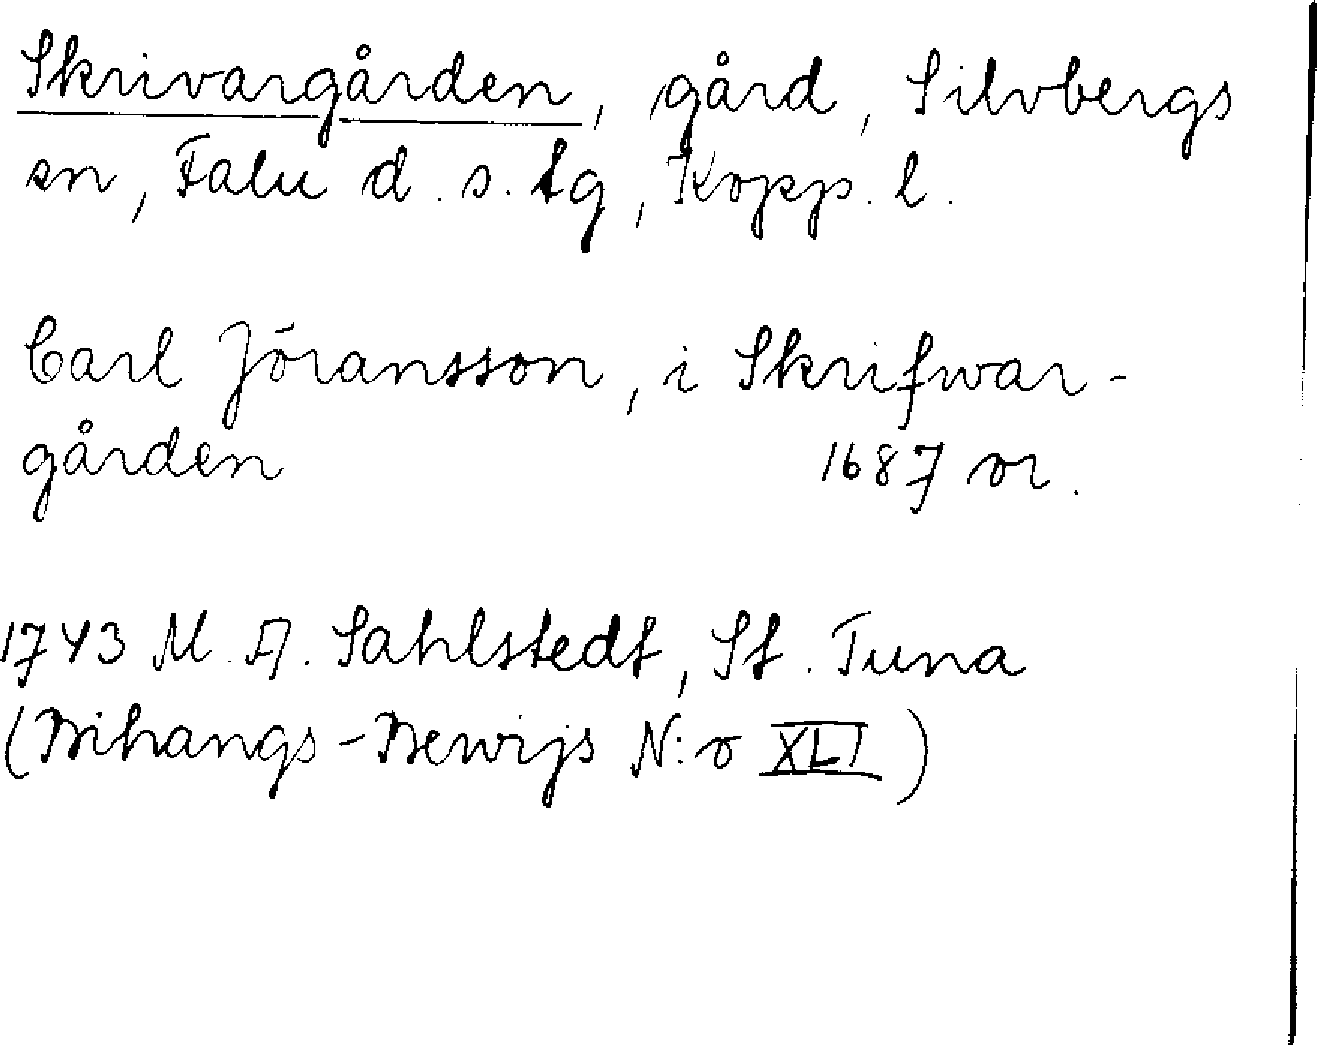 Skrivargården, gård, Silvbergs
sn, Falu d. s. tg, Kopp. l.
Carl Jöransson, i Skrifwar-
gården 1687 or.
1743 M. A. Sahlstedt, St. Tuna
(Bihangs-Bewijs N:o XLI)